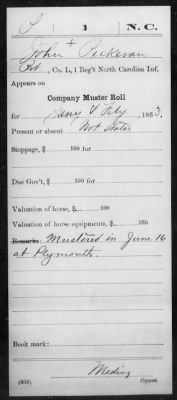 P 1 N.C.
John + Pickeran
Pvt, Co. L, 1 Reg't North Carolina Inf.
Appears on
Company Muster Roll
for Jany & Feby, 1863.
Present or absent Not Stated
Stoppage, $ 100 for
Due Gov't, $ 100 for
Valuation of horse, $ 100
Valuation of horse equipments, $ 100
Remarks: Mustered in June 16
at Plymouth.
Book mark:
Meding
(858) Copyist.